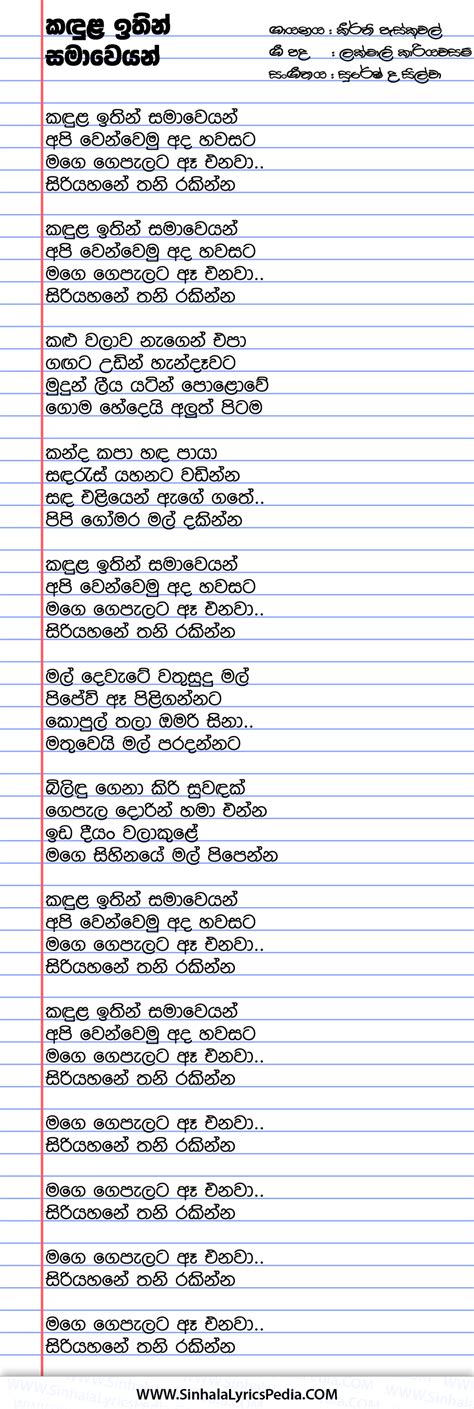 කඳුළ ඉතින්
සමාවෙයන්
ගායනය : කීර්ති පැස්කුවල්
ගී පද : ලක්මාලි කාරියවසම්
සංගීතය : සුරේෂ් ද සිල්වා
කඳුළ ඉතින් සමාවෙයන්
අපි වෙන්වෙමු අද හවසට
මගෙ ගෙපැලට ඈ එනවා..
සිරියහනේ තනි රකින්න
කඳුළ ඉතින් සමාවෙයන්
අපි වෙන්වෙමු අද හවසට
මගෙ ගෙපැලට ඈ එනවා..
සිරියහනේ තනි රකින්න
කළු වලාව නැගෙන් එපා
ගඟට උඩින් හැන්දෑවට
මුදුන් ලීය යටින් පොළොවේ
ගොම හේදෙයි අලුත් පිටම
කන්ද කපා හඳ පායා
සඳරැස් යහනට වඩින්න
සඳ එළියෙන් ඇගේ ගතේ..
පිපි ගෝමර මල් දකින්න
කඳුළ ඉතින් සමාවෙයන්
අපි වෙන්වෙමු අද හවසට
මගෙ ගෙපැලට ඈ එනවා..
සිරියහනේ තනි රකින්න
මල් දෙවැටේ වතුසුදු මල්
පිපේවි ඈ පිළිගන්නට
කොපුල් තලා ඔමරි සිනා..
මතුවෙයි මල් පරදන්නට
බිලිඳු ගෙනා කිරි සුවඳක්
ගෙපැල දොරින් හමා එන්න
ඉඩ දීයං වලාකුළේ
මගෙ සිහිනයේ මල් පිපෙන්න
කඳුළ ඉතින් සමාවෙයන්
අපි වෙන්වෙමු අද හවසට
මගෙ ගෙපැලට ඈ එනවා..
සිරියහනේ තනි රකින්න
කඳුළ ඉතින් සමාවෙයන්
අපි වෙන්වෙමු අද හවසට
මගෙ ගෙපැලට ඈ එනවා..
සිරියහනේ තනි රකින්න
මගෙ ගෙපැලට ඈ එනවා..
සිරියහනේ තනි රකින්න
මගෙ ගෙපැලට ඈ එනවා..
සිරියහනේ තනි රකින්න
මගෙ ගෙපැලට ඈ එනවා..
සිරියහනේ තනි රකින්න
මගෙ ගෙපැලට ඈ එනවා..
සිරියහනේ තනි රකින්න
WWW.SinhalaLyricsPedia.COM